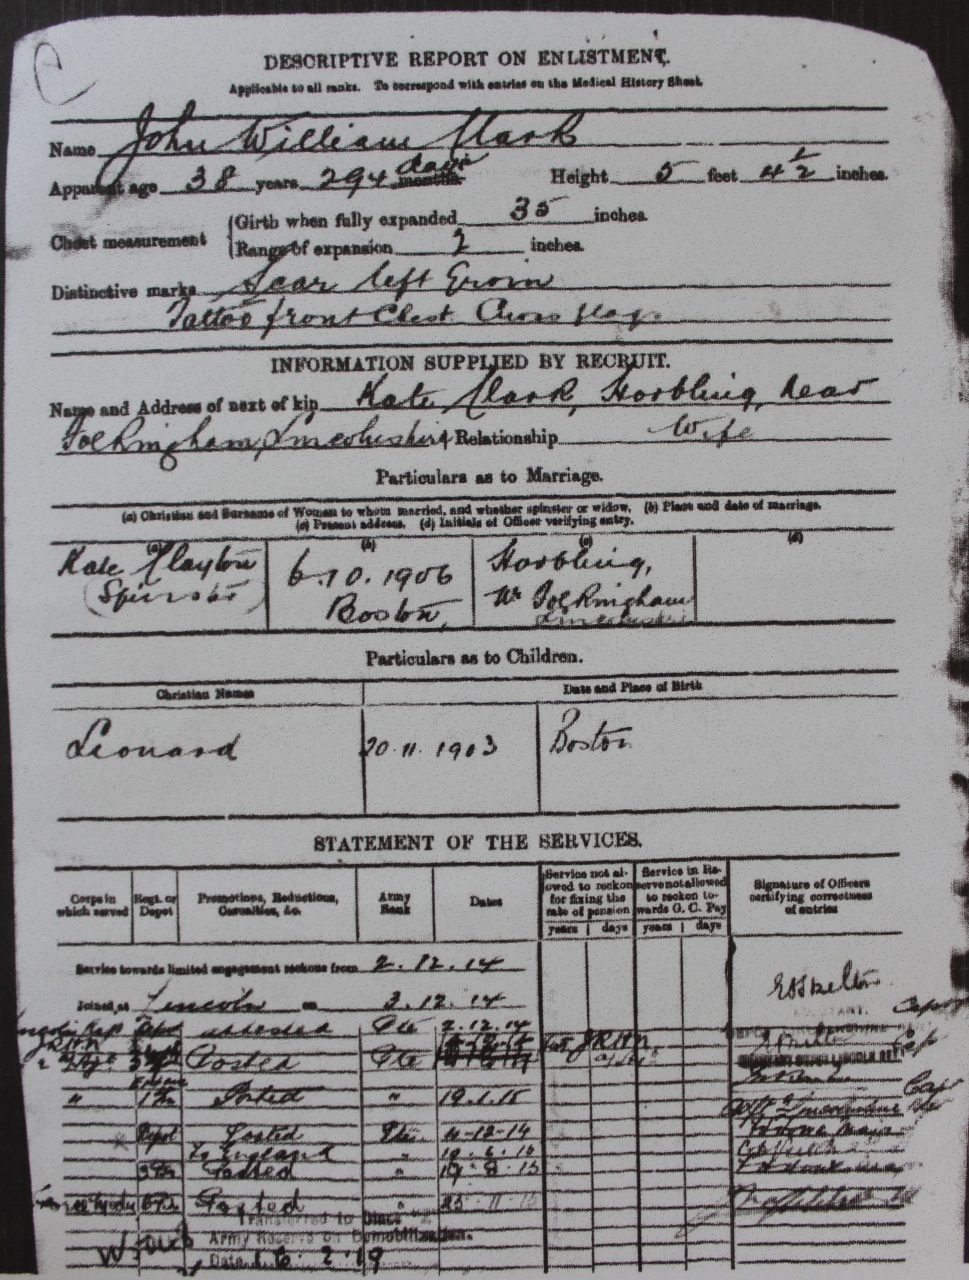 DESCRIPTIVE REPORT ON ENLISTMENT.
Applicable to all ranks. To correspond with entries on the Medical History Sheet.
Name John William Clark
Apparent age 38 years 294 days months. Height 5 feet 4 1/2 inches.
Chest measurement
Girth when fully expanded 35 inches.
Range of expansion 2 inches.
Distinctive marks Scar left Groin
Tattoo front Chest Cross flags
INFORMATION SUPPLIED BY RECRUIT.
Name and Address of next of kin Kate Clark, Horbling, near
Folkingham, Lincolnshire Relationship Wife
Particulars as to Marriage.
(a) Christian and Surname of Woman to whom married, and whether spinster or widow. (b) Place and date of marriage.
(c) Present address. (d) Initials of Officer verifying entry.
(a) (b) (c) (d)
Kate Clayton 6.10.1906 Horbling,
(Spinster) Boston, Nr Folkingham
Lincolnshire
Particulars as to Children.
Christian Names Date and Place of Birth
Leonard 20.11.1903 Boston
STATEMENT OF THE SERVICES.
Corps in which served Regt. or Depot Promotions, Reductions, Casualties, &c. Army Rank Dates Service not allowed to reckon for fixing the rate of pension Service in Reserve not allowed to reckon towards G. C. Pay Signature of Officers certifying correctness of entries
years days years days
Service towards limited engagement reckons from 2.12.14
Joined at Lincoln on 3.12.14
attested Pte 2.12.14
Posted Pte
" Posted " 19.1.15
Depot Posted Pte
To England "
3rd Posted "
Posted "
Transferred to Class
Army Reserve on Demobilization.
Date 16 2 19